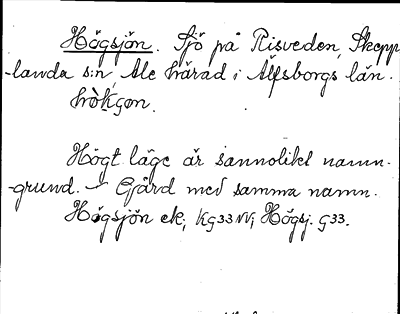 Högsjön. Sjö på Risveden, Skepp
-landa s:n, Ale härad i Älfsborgs län.
Högt läge är sannolikt namn-
-grund. – Gård med samma namn.
Högsjön ek; KG33NV; Högsj. G33.